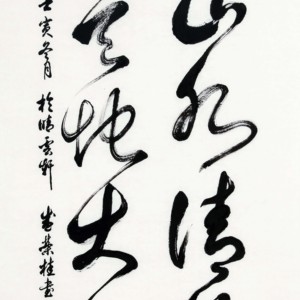 山水清
天地大
壬寅冬月 於晴雲軒 荣桂書